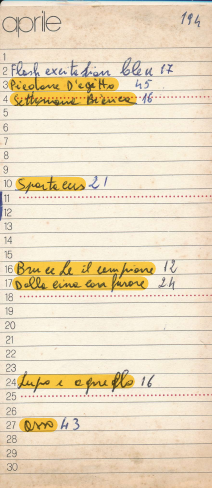 aprile 194
1
2 Flesh excitation bleu 17
3 Piedone D'egitto 45
4 Settimana Bianca 16
5
6
7
8
9
10 Spartacus 21
11
12
13
14
15
16 Bruce Le il campione 12
17 Dalla cina con furore 24
18
19
20
21
22
23
24 Lupo e agnello 16
25
26
27 Orso 43
28
29
30